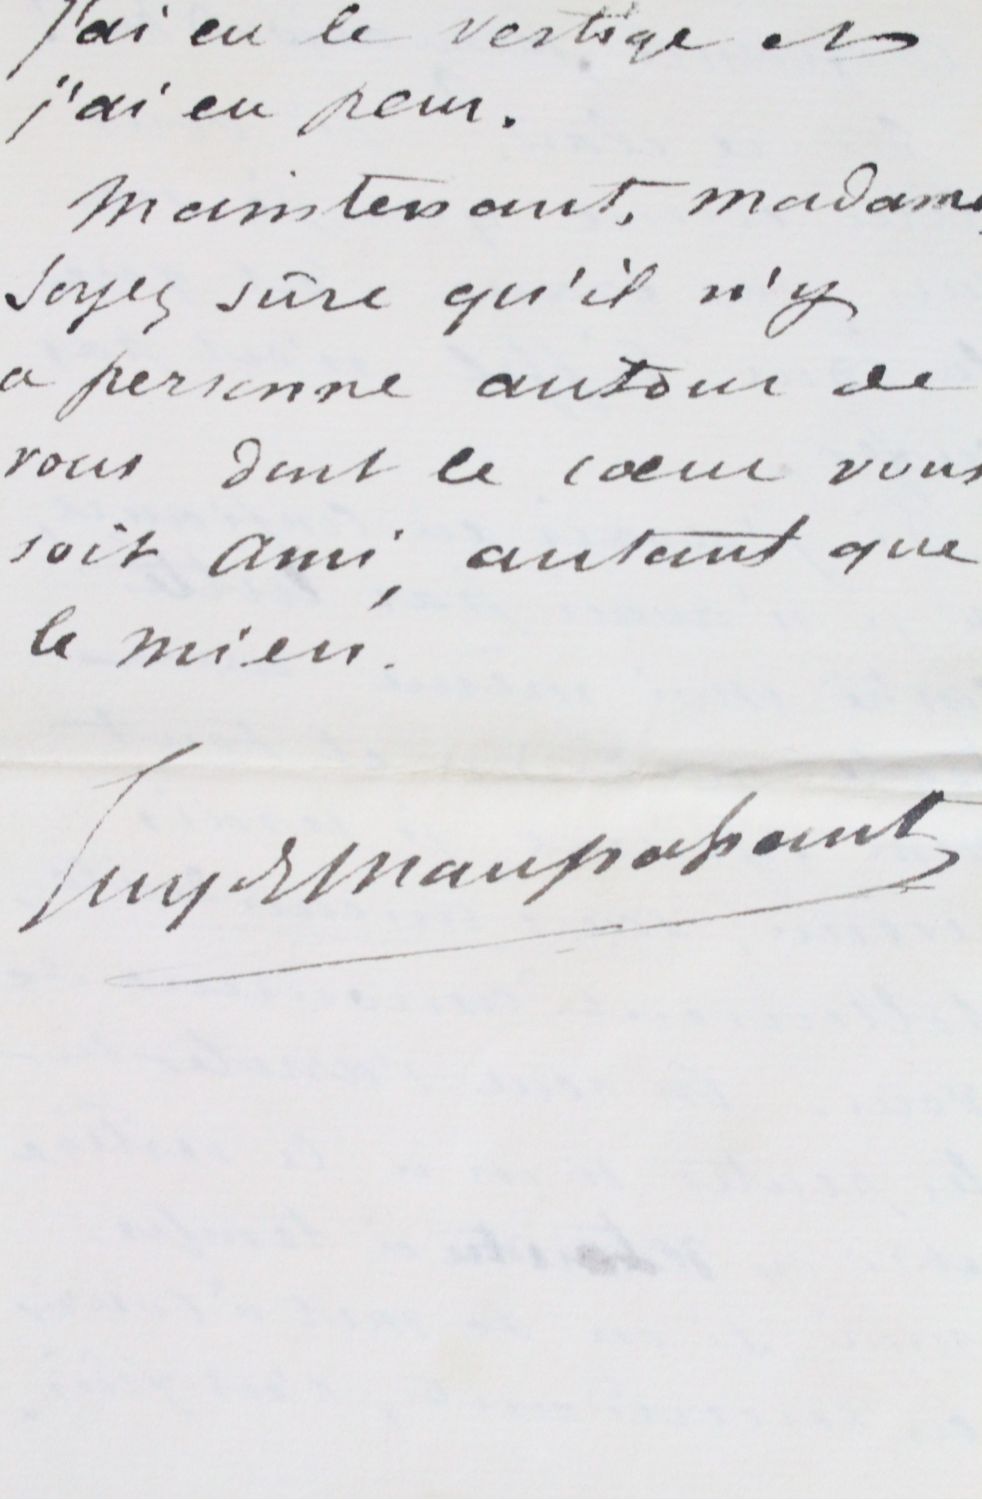 J'ai eu le vertige et
j'ai eu peur.
Maintenant, madame,
soyez sûre qu'il n'y
a personne autour de
vous dont le cœur vous
soit ami, autant que
le mien.
Guy de Maupassant